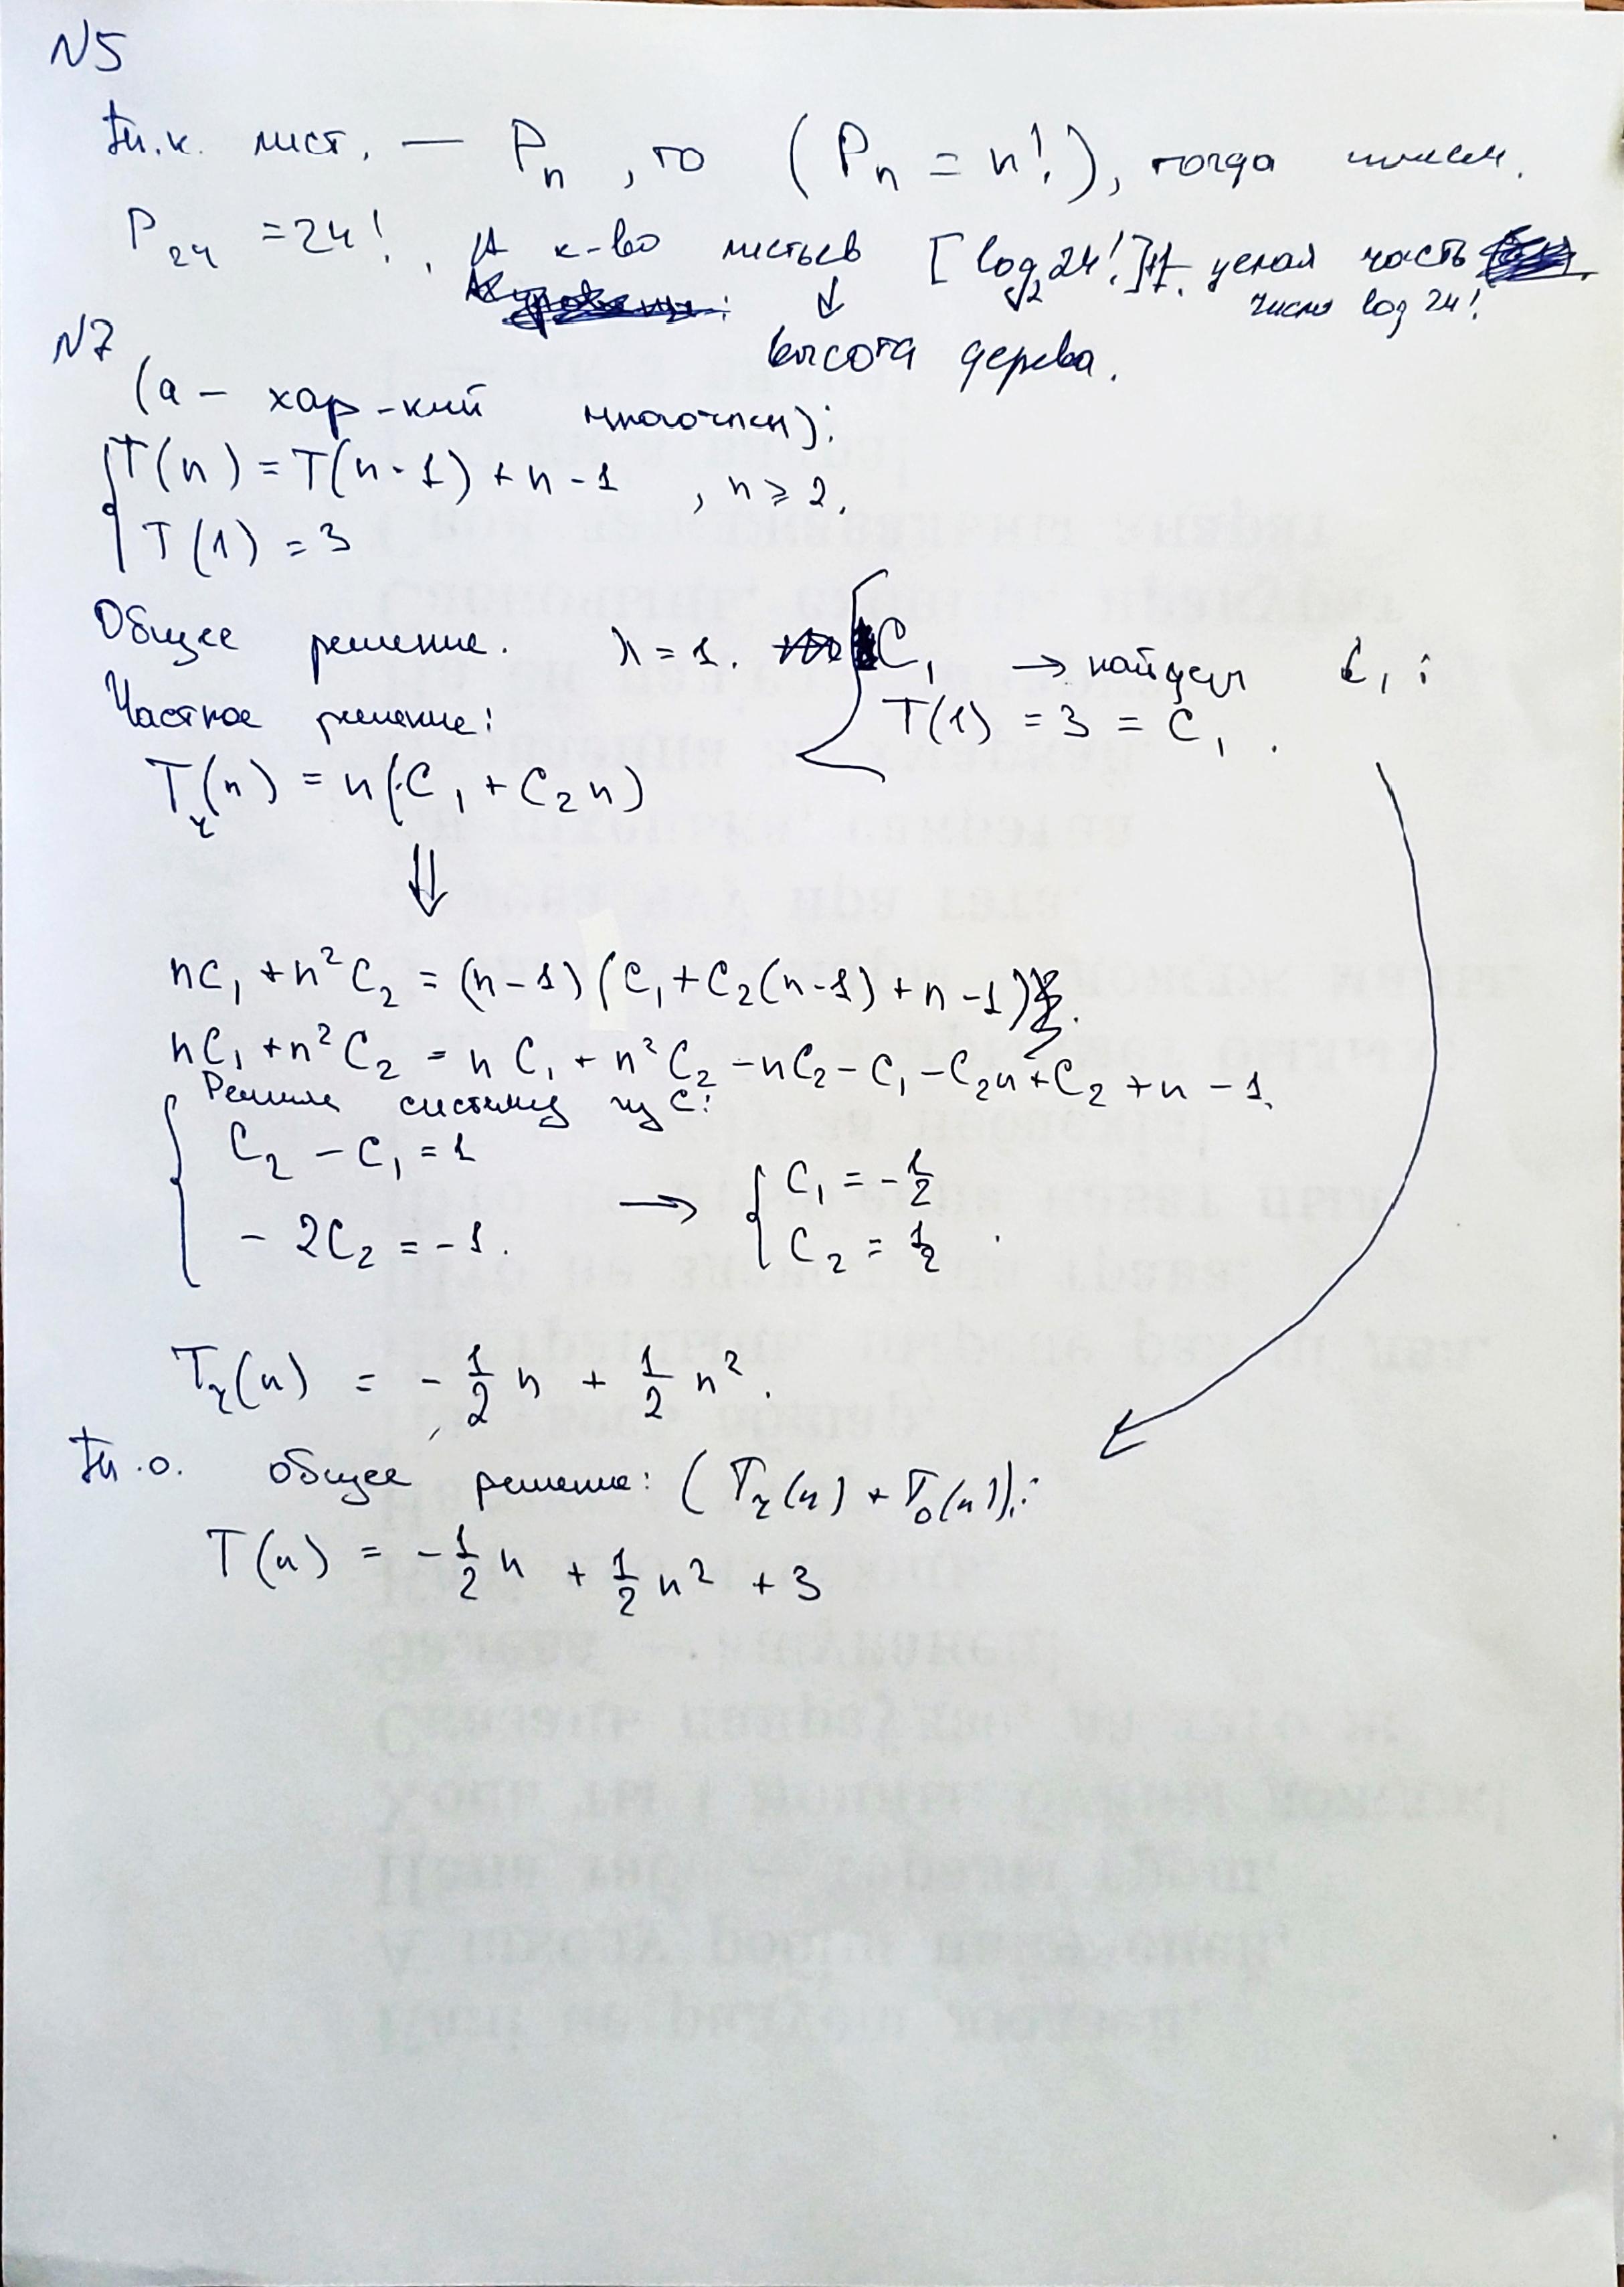 N5
Т.к. лист. — Pₙ, то (Pₙ = n!), тогда имеем.
P₂₄ = 24!. А к-во листьев [log₂24!]+1. целая часть
↓ число log 24!
высота дерева.
N7
(а – хар-кий многочлен):
T(n) = T(n-1) + n - 1 , n ⩾ 2.
T(1) = 3
Общее решение. λ = 1. C₁ → найдем C₁:
T(1) = 3 = C₁.
Частное решение:
Tч(n) = n(C₁ + C₂n)
⇓
nC₁ + n²C₂ = (n-1)(C₁ + C₂(n-1) + n - 1).
nC₁ + n²C₂ = nC₁ + n²C₂ - nC₂ - C₁ - C₂n + C₂ + n - 1.
Решим систему из C:
C₂ - C₁ = 1
- 2C₂ = -1.
→ C₁ = -1/2
C₂ = 1/2.
Tч(n) = - 1/2 n + 1/2 n².
Т.о. общее решение: (Tч(n) + T₀(n)):
T(n) = - 1/2 n + 1/2 n² + 3